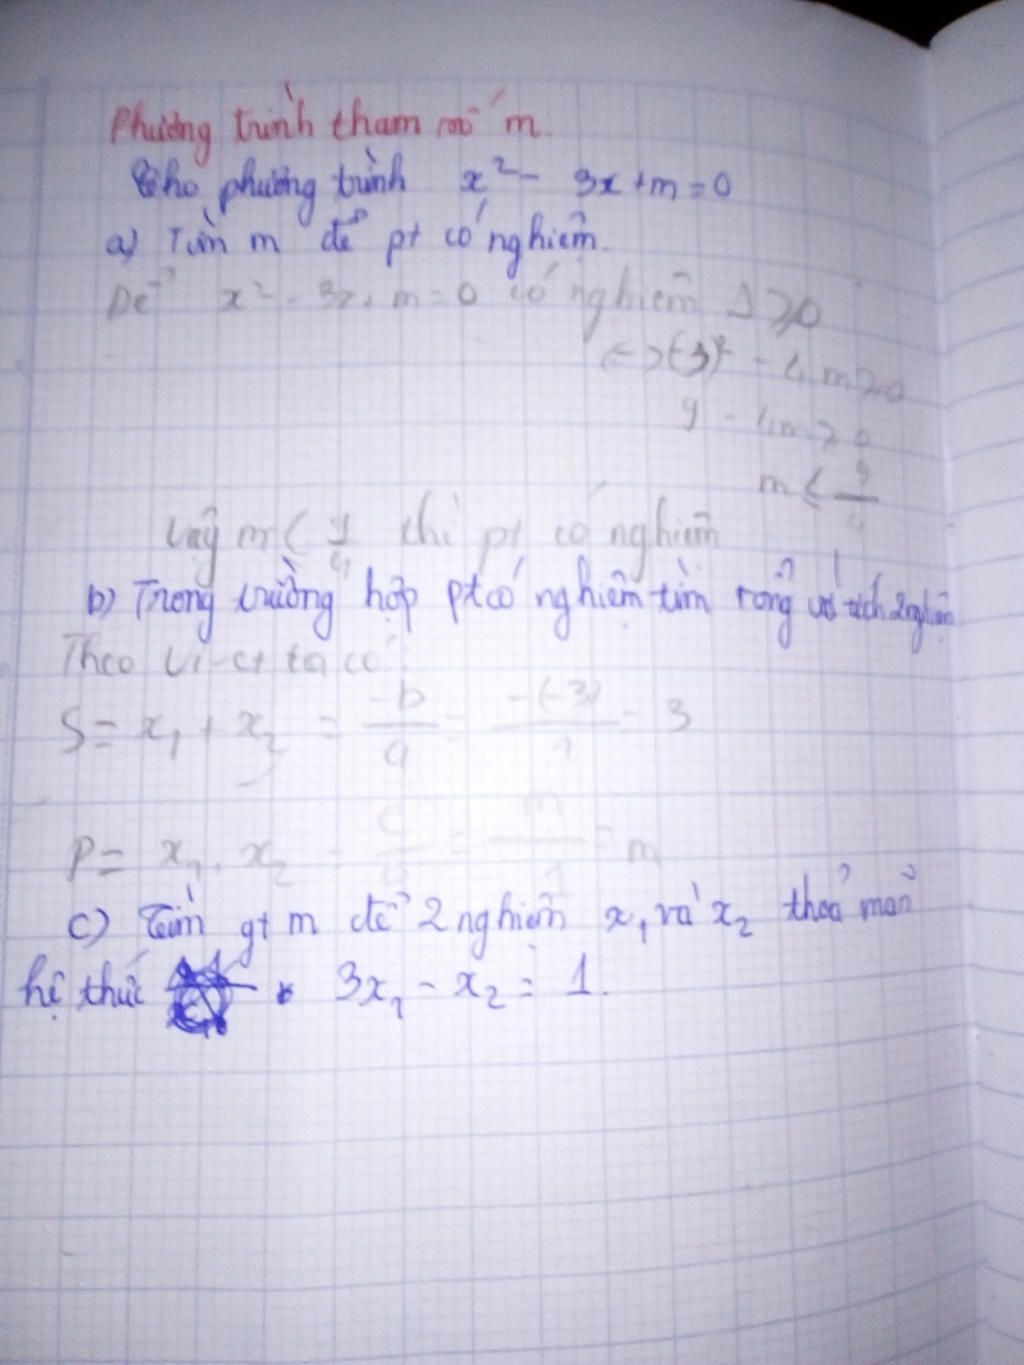 Phương trình tham số m.
Cho phương trình x² - 3x + m = 0
a) Tìm m để pt có nghiệm.
Để x² - 3x + m = 0 có nghiệm Δ ≥ 0
<=> (-3)² - 4m ≥ 0
9 - 4m ≥ 0
m ≤ 9/4
Vậy m ≤ 9/4 thì pt có nghiệm
b) Trong trường hợp pt có nghiệm tìm tổng và tích 2 nghiệm
Theo Vi-et ta có
S = x₁ + x₂ = -b/a = -(-3)/1 = 3
P = x₁ . x₂ = c/a = m/1 = m
c) Tìm gt m để 2 nghiệm x₁ và x₂ thoả mãn
hệ thức 3x₁ - x₂ = 1.